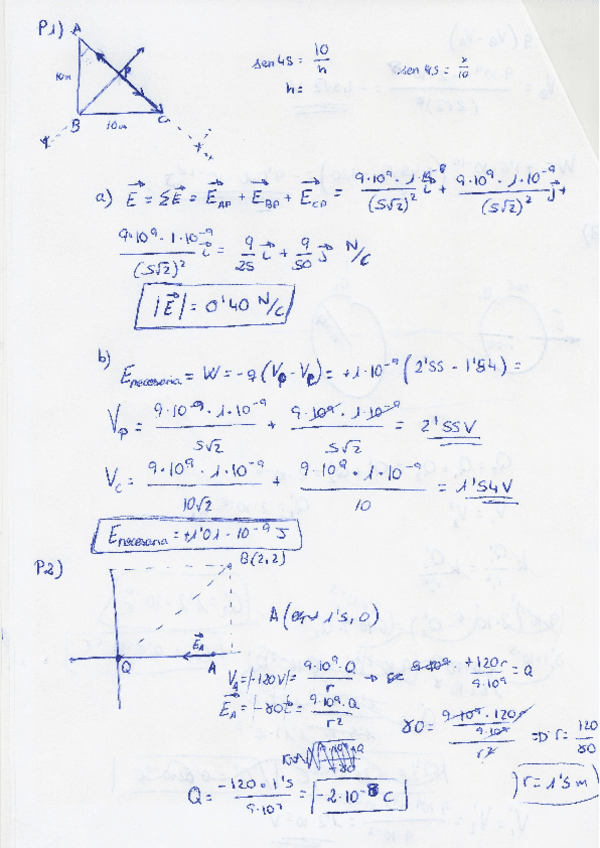 P1)
A
10m
P
B
10m
C
sen 45 = 10/h
sen 45 = x/10
h =
a) E⃗ = ΣE⃗ = E⃗AP + E⃗BP + E⃗CP = 9·10⁹·1·10⁻⁹/(5√2)² i⃗ + 9·10⁹·1·10⁻⁹/(5√2)² j⃗ +
9·10⁹·1·10⁻⁹/(5√2)² i⃗ = 9/25 i⃗ + 9/50 j⃗ N/C
|E⃗| = 0'40 N/C
b)
E necesaria = W = -q (VP - VP) = +1·10⁻⁹ (2'55 - 1'54) =
VP = 9·10⁻⁹·1·10⁻⁹/5√2 + 9·10⁹·1·10⁻⁹/5√2 = 2'55V
VC = 9·10⁹·1·10⁻⁹/10√2 + 9·10⁹·1·10⁻⁹/10 = 1'54V
E necesaria = +1'01·10⁻⁹ J
P2)
B(2,2)
A( 1'5, 0)
E⃗A
Q
A
VA = |-120V| = 9·10⁹·Q/r → +120r/9·10⁹ = Q
E⃗A = |-80 i⃗| = 9·10⁹·Q/r²
80 = 9·10⁹·120r/9·10⁹/r² => r = 120/80
r = 1'5 m
Q = -120·1'5/9·10⁹ = -2·10⁻⁸ C